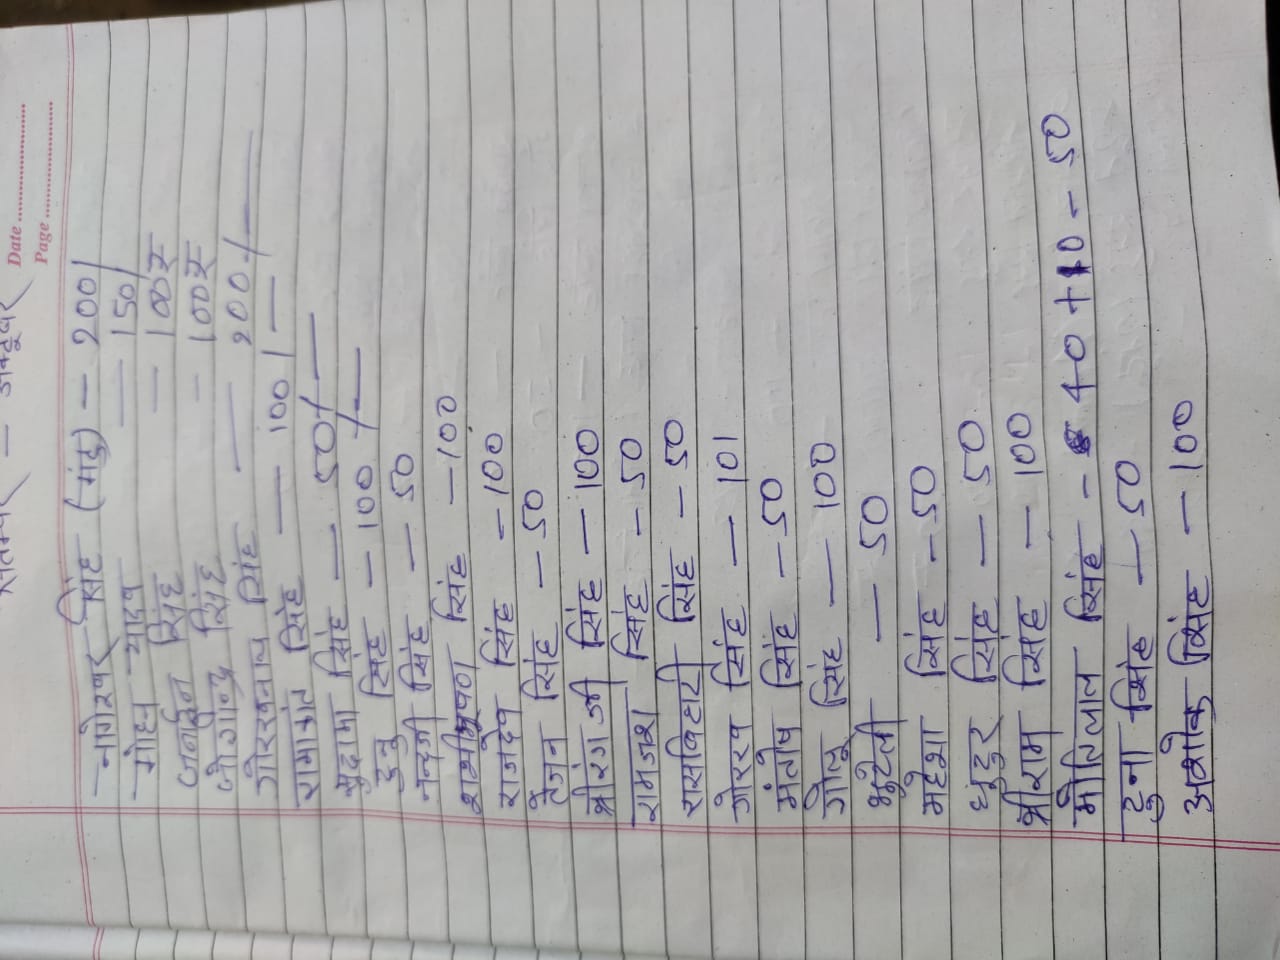 सितम्बर - अक्टूबर
Date
Page
नागेश्वर सिंह (मंटु) - 200/
मोहन यादव - 150/
जनार्दन सिंह - 100₹
जोगीन्द्र सिंह - 100₹
गोरखनाथ सिंह - 200/-
रामाकांत सिंह - 100/-
सुदामा सिंह - 50/-
टुनु सिंह - 100/-
नन्दजी सिंह - 50
शशीभूषण सिंह - 100
राजदेव सिंह - 100
तेजन सिंह - 50
श्रीरंग जी सिंह - 100
रामजश सिंह - 50
रासबिहारी सिंह - 50
गोरख सिंह - 101
मंतोष सिंह - 50
गोलू सिंह - 100
भुटेली - 50
महेशा सिंह - 50
धुंटुर सिंह - 50
श्रीराम सिंह - 100
मोतिलाल सिंह - 40 + 10 - 50
टुना सिंह - 50
अशोक सिंह - 100